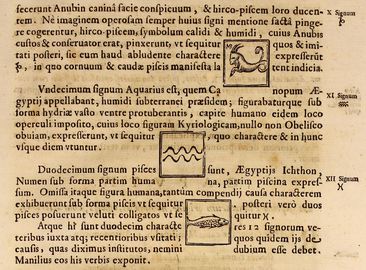 fecerunt Anubin caninâ facie conspicuum, & hirco-piscem loro ducen-
tem. Ne imaginem operosam semper huius signi mentione factâ pinge-
re cogerentur, hirco-piscem, symbolum calidi & humidi, cuius Anubis
custos & conseruator erat, pinxerunt, vt sequitur quos & imi-
tati posteri, sic eum haud abludente charactere expresserũt
♑, in quo cornuum & caudæ piscis manifesta latent indicia.
X Signum
♑
Vndecimum signum Aquarius est, quem Canopum Æ-
gyptij appellabant, humidi subterranei præsidem; figurabaturque sub
forma hydriæ vasto ventre protuberantis, capite humano eidem loco
operculi imposito, cuius loco figuram Kyriologicam, nullo non Obelisco
obuiam, expresserunt, vt sequitur, quo charactere & in hunc
vsque diem vtuntur.
XI Signum
♒
Duodecimum signum pisces sunt, Ægyptijs Ichthon,
Numen sub forma partim humana, partim piscina expres-
sum. Omissa itaque figura humana, tantùm compendij causa characterem
exhibuerunt sub forma piscis vt sequitur. posteri verò duos
pisces posuerunt veluti colligatos vt sequitur ♓.
XII Signum
♓
Atque hi sunt duodecim characteres 12 signorum ve-
teribus iuxta atq; recentioribus vsitati; quos quidem ijs de
causis, quas diximus institutos, nemini dubium esse debet.
Manilius eos his verbis exponit.